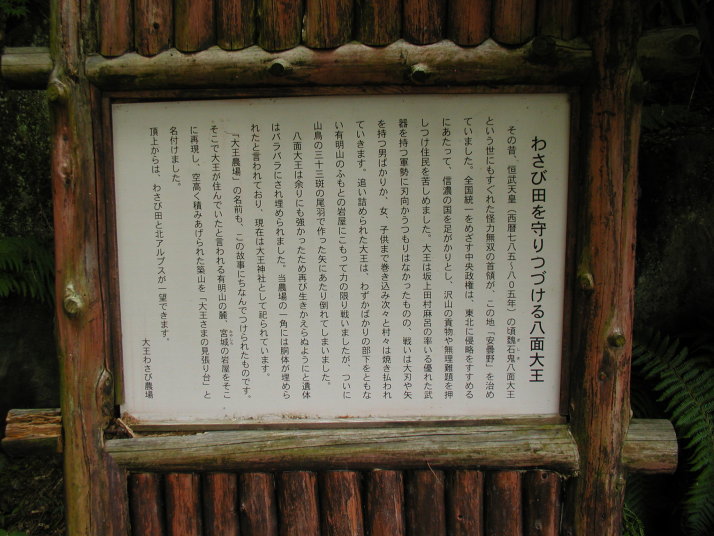 わさび田を守りつづける八面大王
その昔、恒武天皇（西暦七八五～八０五年）の頃魏石鬼八面大王
という世にもすぐれた怪力無双の首領が、この地「安曇野」を治め
ていました。全国統一をめざす中央政権は、東北に侵略をすすめる
にあたって、信濃の国を足がかりとし、沢山の貢物や無理難題を押
しつけ住民を苦しめました。大王は坂上田村麻呂の率いる優れた武
器を持つ軍勢に刃向かうつもりはなかったものの、戦いは大刃や矢
を持つ男ばかりか、女、子供まで巻き込み次々と村々は焼き払われ
ていきます。追い詰められた大王は、わずかばかりの部下をともな
い有明山のふもとの岩屋にこもって力の限り戦いましたが、ついに
山鳥の三十三斑の尾羽で作った矢にあたり倒れてしまいました。
八面大王は余りにも強かったため再び生きかえらぬようにと遺体
はバラバラにされ埋められました。当農場の一角には胴体が埋めら
れたと言われており、現在は大王神社として祀られています。
「大王農場」の名前も、この故事にちなんでつけられたものです。
そこで大王が住んでいたと言われる有明山の麓、宮城の岩屋をそこ
に再現し、空高く積みあげられた築山を「大王さまの見張り台」と
名付けました。
頂上からは、わさび田と北アルプスが一望できます。
大王わさび農場